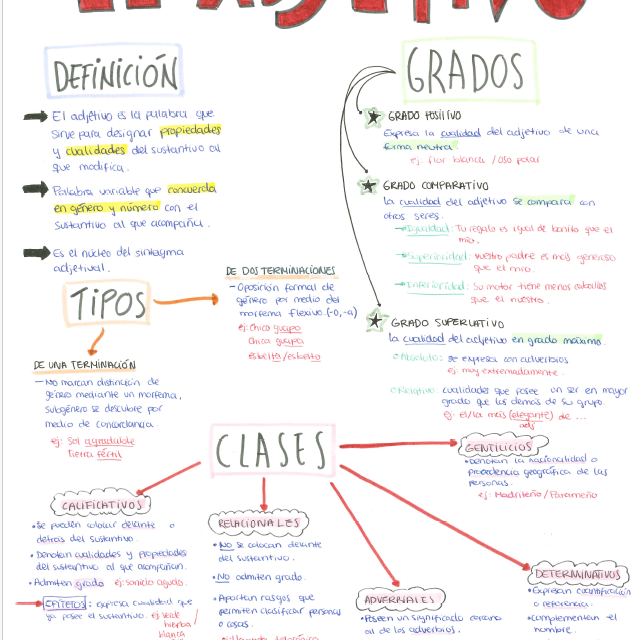 EL ADJETIVO
DEFINICIÓN
El adjetivo es la palabra que
sirve para designar propiedades
y cualidades del sustantivo al
que modifica.
Palabra variable que concuerda
en género y número con el
sustantivo al que acompaña.
Es el núcleo del sintagma
adjetival.
TIPOS
DE DOS TERMINACIONES
- Oposición formal de
género por medio del
morfema flexivo. (-o, -a)
ej: Chico guapo
Chica guapa
Esbelto/esbelta
DE UNA TERMINACIÓN
- No marcan distinción de
género mediante un morfema,
subgénero se descubre por
medio de concordancia.
ej: Sol agradable
Tierra fértil
GRADOS
GRADO POSITIVO
Expresa la cualidad del adjetivo de una
forma neutra.
ej: flor blanca / oso polar
GRADO COMPARATIVO
la cualidad del adjetivo se compara con
otros seres.
Igualdad: Tu regalo es igual de bonito que el
mío.
Superioridad: vuestro padre es más generoso
que el mío.
Inferioridad: Su motor tiene menos caballos
que el nuestro.
GRADO SUPERLATIVO
la cualidad del adjetivo en grado máximo.
Absoluto: se expresa con adverbios
ej: muy extremadamente.
Relativo: cualidades que posee un ser en mayor
grado que los demás de su grupo.
ej: el/la más (elegante) de ...
adj
CLASES
CALIFICATIVOS
• Se pueden colocar delante o
detrás del sustantivo.
• Denotan cualidades y propiedades
del sustantivo al que acompañan.
• Admiten grado ej: sonido agudo.
EPÍTETOS: expresa cualidad que
ya posee el sustantivo. ej: verde
hierba /
blanca
RELACIONALES
• No se colocan delante
del sustantivo.
• NO admiten grado.
• Aportan rasgos que
permiten clasificar personas
o cosas.
ADVERBIALES
• Poseen un significado cercano
al de los adverbios.
GENTILICIOS
• Denotan la nacionalidad o
procedencia geográfica de las
personas.
ej: Madrileño / Panameño
DETERMINATIVOS
• Expresan cuantificación
o referencia.
• Complementan el
nombre.